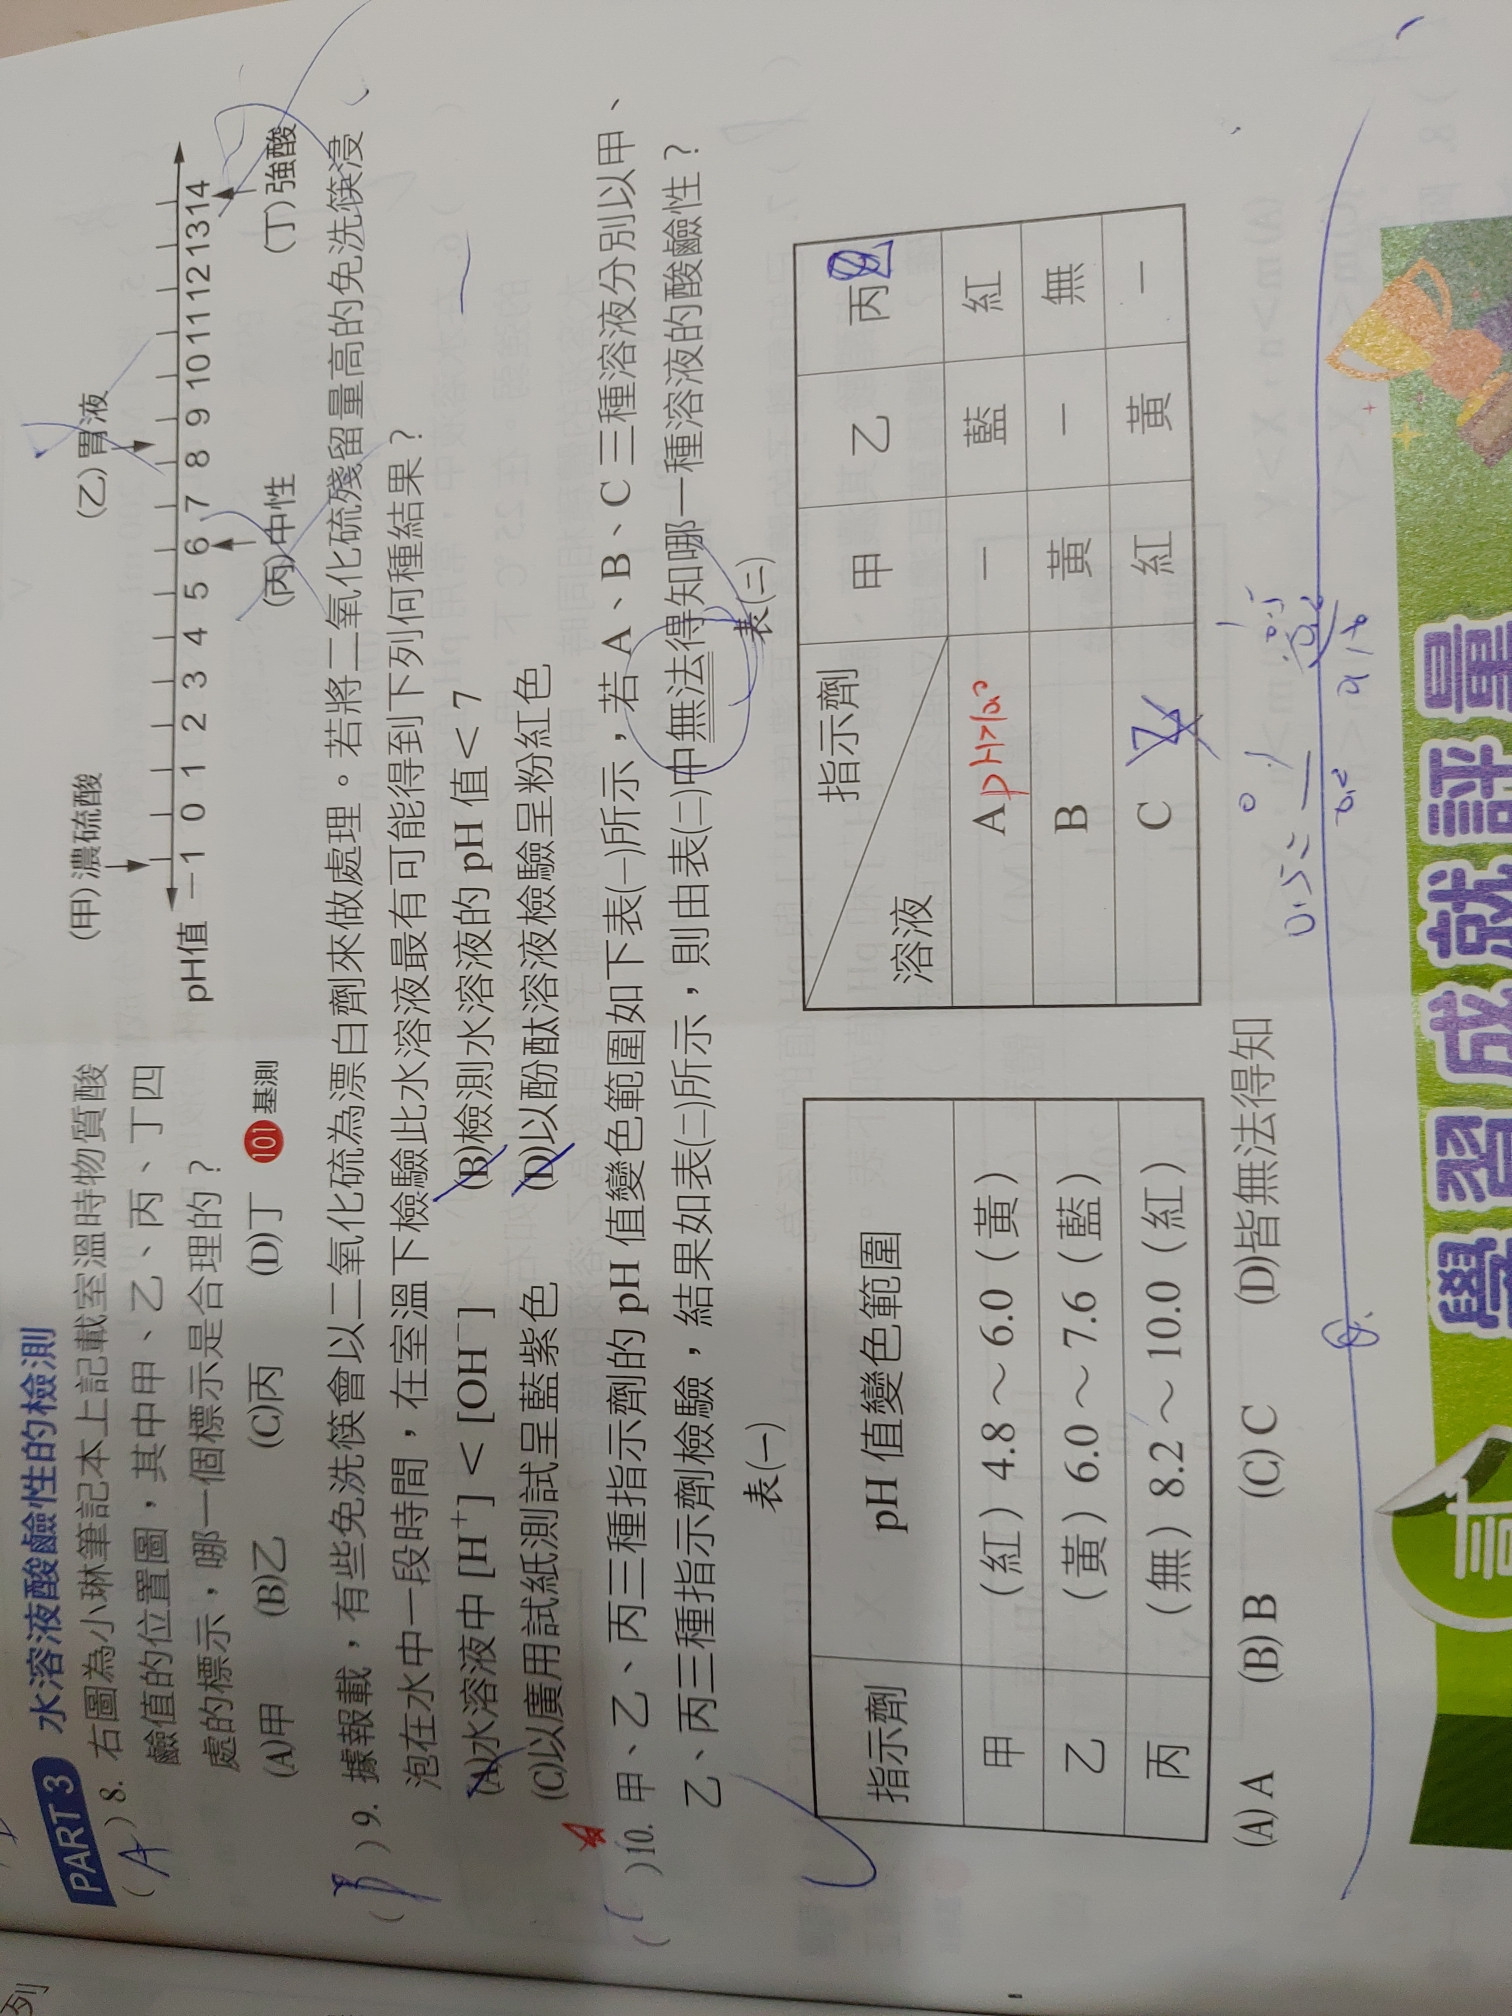 列
PART 3 水溶液酸鹼性的檢測
( A ) 8. 右圖為小琳筆記本上記載室溫時物質酸
鹼值的位置圖，其中甲、乙、丙、丁四
處的標示，哪一個標示是合理的？
(A)甲 (B)乙 (C)丙 (D)丁 101 基測
(甲)濃硫酸 (乙)胃液
pH值 －1 0 1 2 3 4 5 6 7 8 9 10 11 12 13 14
(丙)中性 (丁)強酸
( ) 9. 據報載，有些免洗筷會以二氧化硫為漂白劑來做處理。若將二氧化硫殘留量高的免洗筷浸
泡在水中一段時間，在室溫下檢驗此水溶液最有可能得到下列何種結果？
(A)水溶液中 [H⁺] < [OH⁻] (B)檢測水溶液的 pH 值 < 7
(C)以廣用試紙測試呈藍紫色 (D)以酚酞溶液檢驗呈粉紅色
( ) 10. 甲、乙、丙三種指示劑的 pH 值變色範圍如下表(一)所示，若 A、B、C 三種溶液分別以甲、
乙、丙三種指示劑檢驗，結果如表(二)所示，則由表(二)中無法得知哪一種溶液的酸鹼性？
表(一)
指示劑 pH 值變色範圍
甲 （紅）4.8 ～ 6.0（黃）
乙 （黃）6.0 ～ 7.6（藍）
丙 （無）8.2 ～ 10.0（紅）
表(二)
指示劑 甲 乙 丙
溶液
A pH>10 － 藍 紅
B 黃 － 無
C 紅 黃 －
(A) A (B) B (C) C (D)皆無法得知
學習成就評量